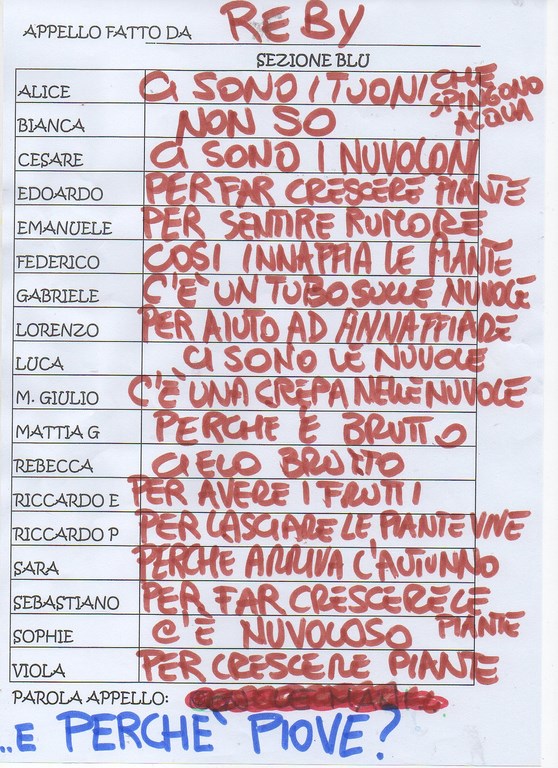 APPELLO FATTO DA REBY
SEZIONE BLU
ALICE CI SONO I TUONI CHE SPINGONO ACQUA
BIANCA NON SO
CESARE CI SONO I NUVOLONI
EDOARDO PER FAR CRESCERE PIANTE
EMANUELE PER SENTIRE RUMORE
FEDERICO COSI INNAFFIA LE PIANTE
GABRIELE C'È UN TUBO SULLE NUVOLE
LORENZO PER AIUTO AD ANNAFFIARE
LUCA CI SONO LE NUVOLE
M. GIULIO C'È UNA CREPA NELLE NUVOLE
MATTIA G PERCHE È BRUTTO
REBECCA CIELO BRUTTO
RICCARDO E PER AVERE I FRUTTI
RICCARDO P PER LASCIARE LE PIANTE VIVE
SARA PERCHE ARRIVA L'AUTUNNO
SEBASTIANO PER FAR CRESCERE LE PIANTE
SOPHIE C'È NUVOLOSO
VIOLA PER CRESCERE PIANTE
PAROLA APPELLO:
..E PERCHE' PIOVE?